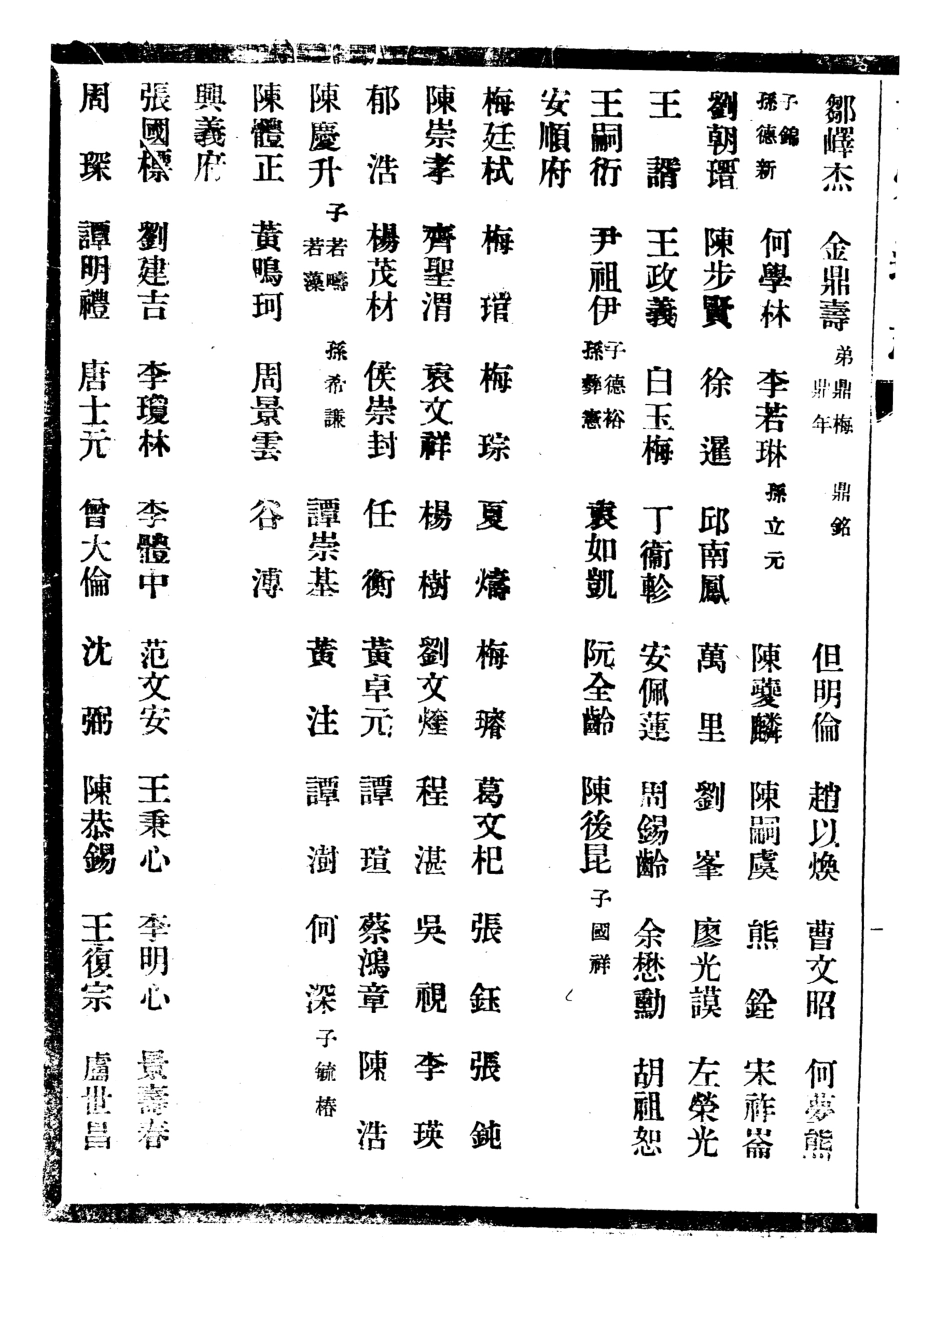 鄒嶧杰 金鼎壽 弟鼎梅 鼎年 鼎銘 但明倫 趙以煥 曹文昭 何夢熊
子錦 孫德新 何學林 李若琳 孫立元 陳夔麟 陳嗣虞 熊銓 宋祚崙
劉朝瑨 陳步賢 徐暹 邱南鳳 萬里 劉峯 廖光謨 左榮光
王諝 王政義 白玉梅 丁衞軫 安佩蓮 周錫齡 余懋勳 胡祖恕
王嗣衍 尹祖伊 子德裕 孫彝憲 袁如凱 阮全齡 陳後昆 子國祥
安順府
梅廷栻 梅琯 梅琮 夏燽 梅璿 葛文杞 張鈺 張鈍
陳崇孝 齊聖渭 袁文祥 楊樹 劉文煃 程湛 吳視 李瑛
郁浩 楊茂材 侯崇封 任衡 黃卓元 譚瑄 蔡鴻章 陳浩
陳慶升 子若疇 若藻 孫希謙 譚崇基 黃注 譚澍 何深 子毓椿
陳體正 黃鳴珂 周景雲 谷溥
興義府
張國標 劉建吉 李瓊林 李體中 范文安 王秉心 李明心 景壽春
周琛 譚明禮 唐士元 曾大倫 沈弼 陳恭錫 王復宗 盧世昌